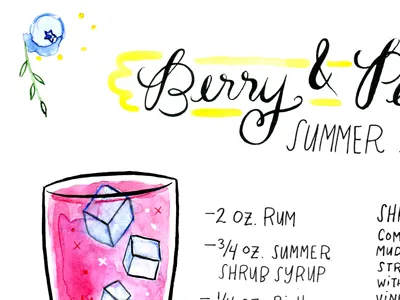 Berry & Pe
SUMMER
-2 OZ. RUM
-3/4 OZ. SUMMER
SHRUB SYRUP
SH
COM
MUD
STR
WITH
VIN